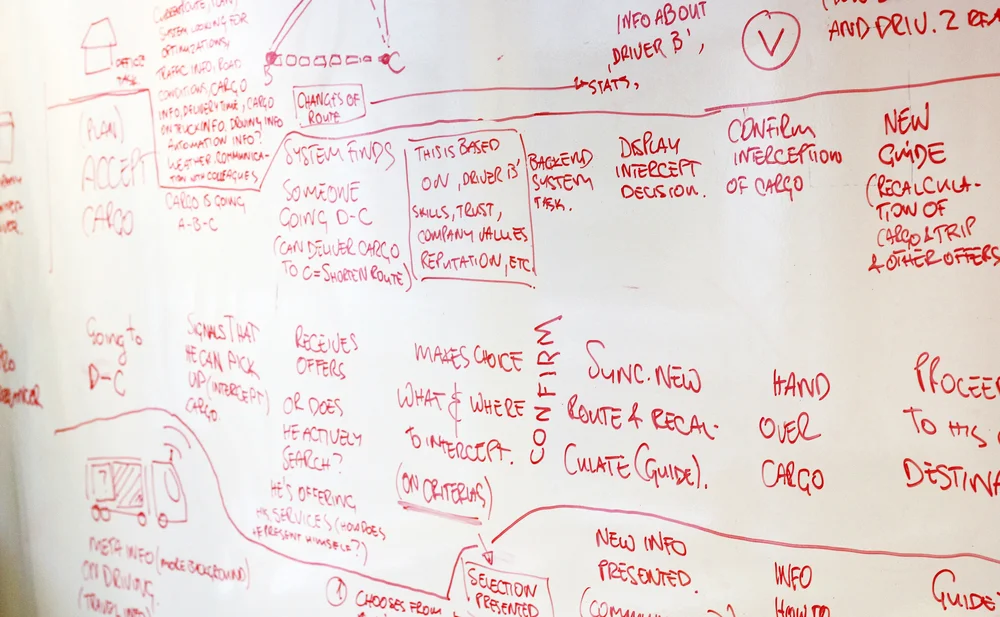 SYSTEM LOOKING FOR
OPTIMIZATIONS,
TRAFFIC INFO, ROAD
CONDITIONS, CARGO
INFO, DELIVERY TIME, CARGO
ON TRUCK INFO, DRIVING INFO
AUTOMATION INFO?
WETHER, COMMUNICA-
TION WITH COLLEAGUES
OFFICE
TASK
B
C
CHANGES OF
ROUTE
INFO ABOUT
,DRIVER B',
STATS,
V
AND DRIV. 2
(PLAN)
ACCEPT
CARGO
CARGO IS GOING
A-B-C
SYSTEM FINDS
SOMEONE
GOING D-C
(CAN DELIVER CARGO
TO C=SHORTEN ROUTE)
THIS IS BASED
ON ,DRIVER B'
SKILLS, TRUST,
COMPANY VALUES
REPUTATION, ETC.
BACKEND
SYSTEM
TASK.
DISPLAY
INTERCEPT
DECISION.
CONFIRM
INTERCEPTION
OF CARGO
NEW
GUIDE
(RECALCULA-
TION OF
CARGO & TRIP
& OTHER OFFERS
GOING TO
D-C
SIGNALS THAT
HE CAN PICK
UP (INTERCEPT)
CARGO.
RECEIVES
OFFERS
OR DOES
HE ACTIVELY
SEARCH?
HE'S OFFERING
HIS SERVICES (HOW DOES
HE PRESENT HIMSELF?)
MAKES CHOICE
WHAT & WHERE
TO INTERCEPT.
(ON CRITERIAS)
CONFIRM
SYNC. NEW
ROUTE & RECAL-
CULATE (GUIDE).
HAND
OVER
CARGO
PROCEE
TO HIS
DESTINA
?
META INFO (MORE BACKGROUND)
ON DRIVING.
(TRAVEL INFO)
1 CHOOSES FROM
SELECTION
PRESENTED
NEW INFO
PRESENTED.
INFO
HOW TO
GUIDE